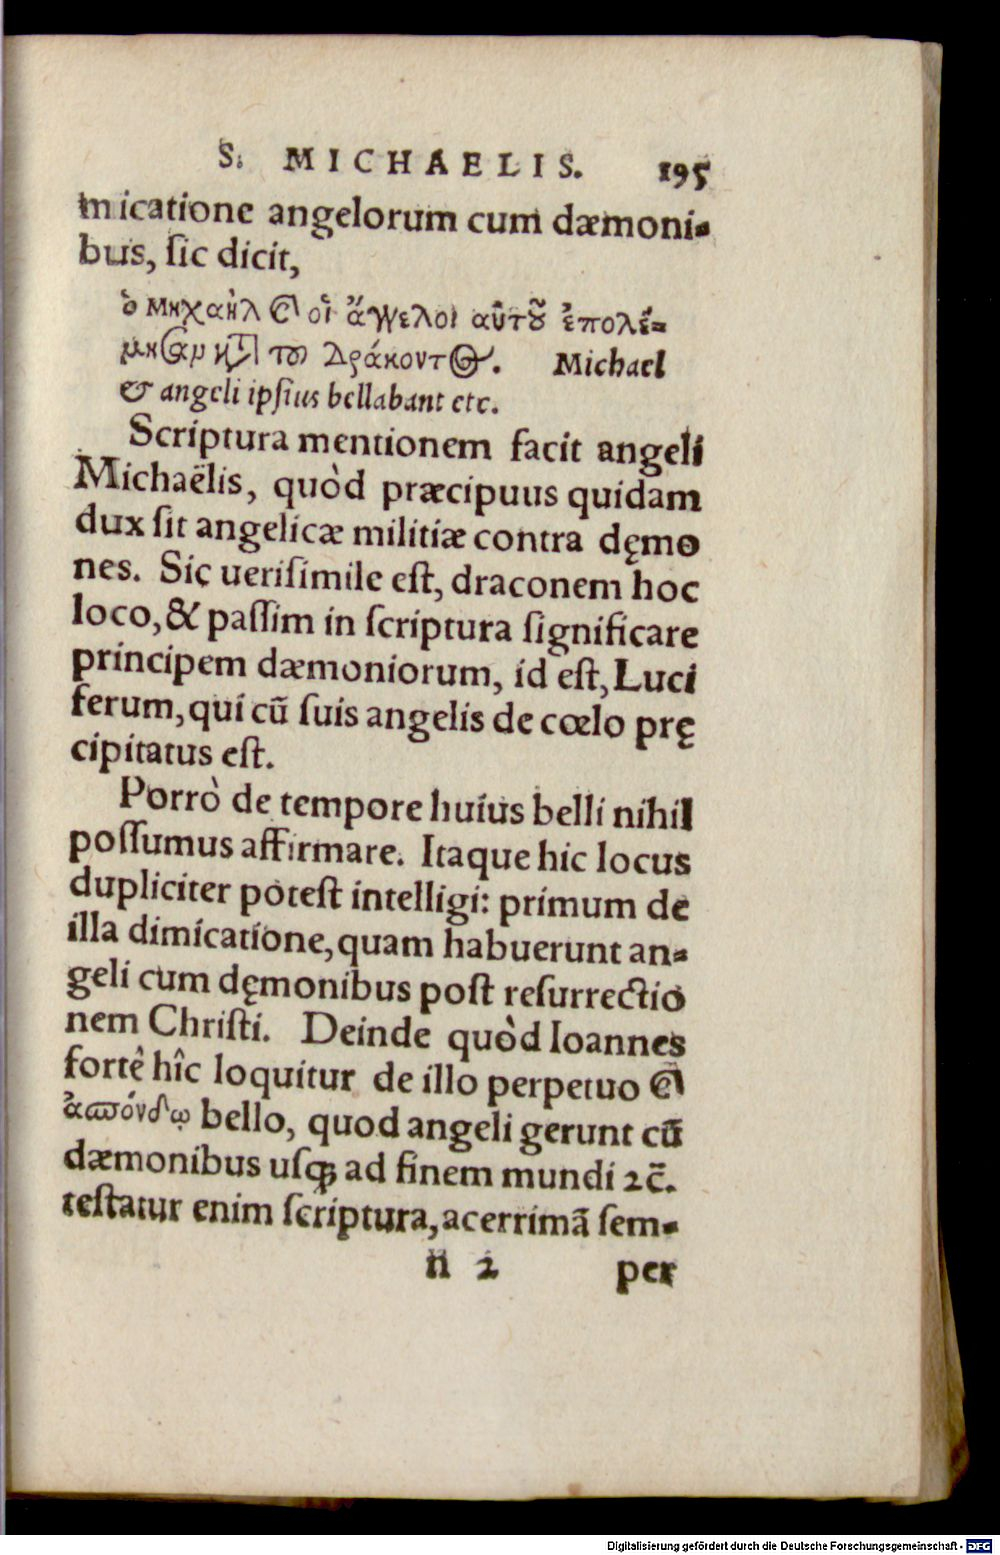 S. MICHAELIS. 195
micatione angelorum cum dæmoni-
bus, ſic dicit,
ὁ μιχαὴλ καὶ οἱ ἄγγελοι αὐτοῦ ἐπολέ-
μησαν κατὰ τοῦ δράκοντος. Michael
& angeli ipſius bellabant etc.
Scriptura mentionem facit angeli
Michaëlis, quòd præcipuus quidam
dux ſit angelicæ militiæ contra dęmo
nes. Sic ueriſimile eſt, draconem hoc
loco, & paſſim in ſcriptura ſignificare
principem dæmoniorum, id eſt, Luci
ferum, qui cũ ſuis angelis de cœlo prę
cipitatus eſt.
Porrò de tempore huius belli nihil
poſſumus affirmare. Itaque hic locus
dupliciter poteſt intelligi: primum de
illa dimicatione, quam habuerunt an-
geli cum dęmonibus poſt reſurrectio
nem Chriſti. Deinde quòd Ioannes
fortè hîc loquitur de illo perpetuo καὶ
ἀσπόνδῳ bello, quod angeli gerunt cũ
dæmonibus uſq; ad finem mundi ꝛc̃.
teſtatur enim ſcriptura, acerrimã ſem-
n 2 per
Digitalisierung gefördert durch die Deutsche Forschungsgemeinschaft - DFG